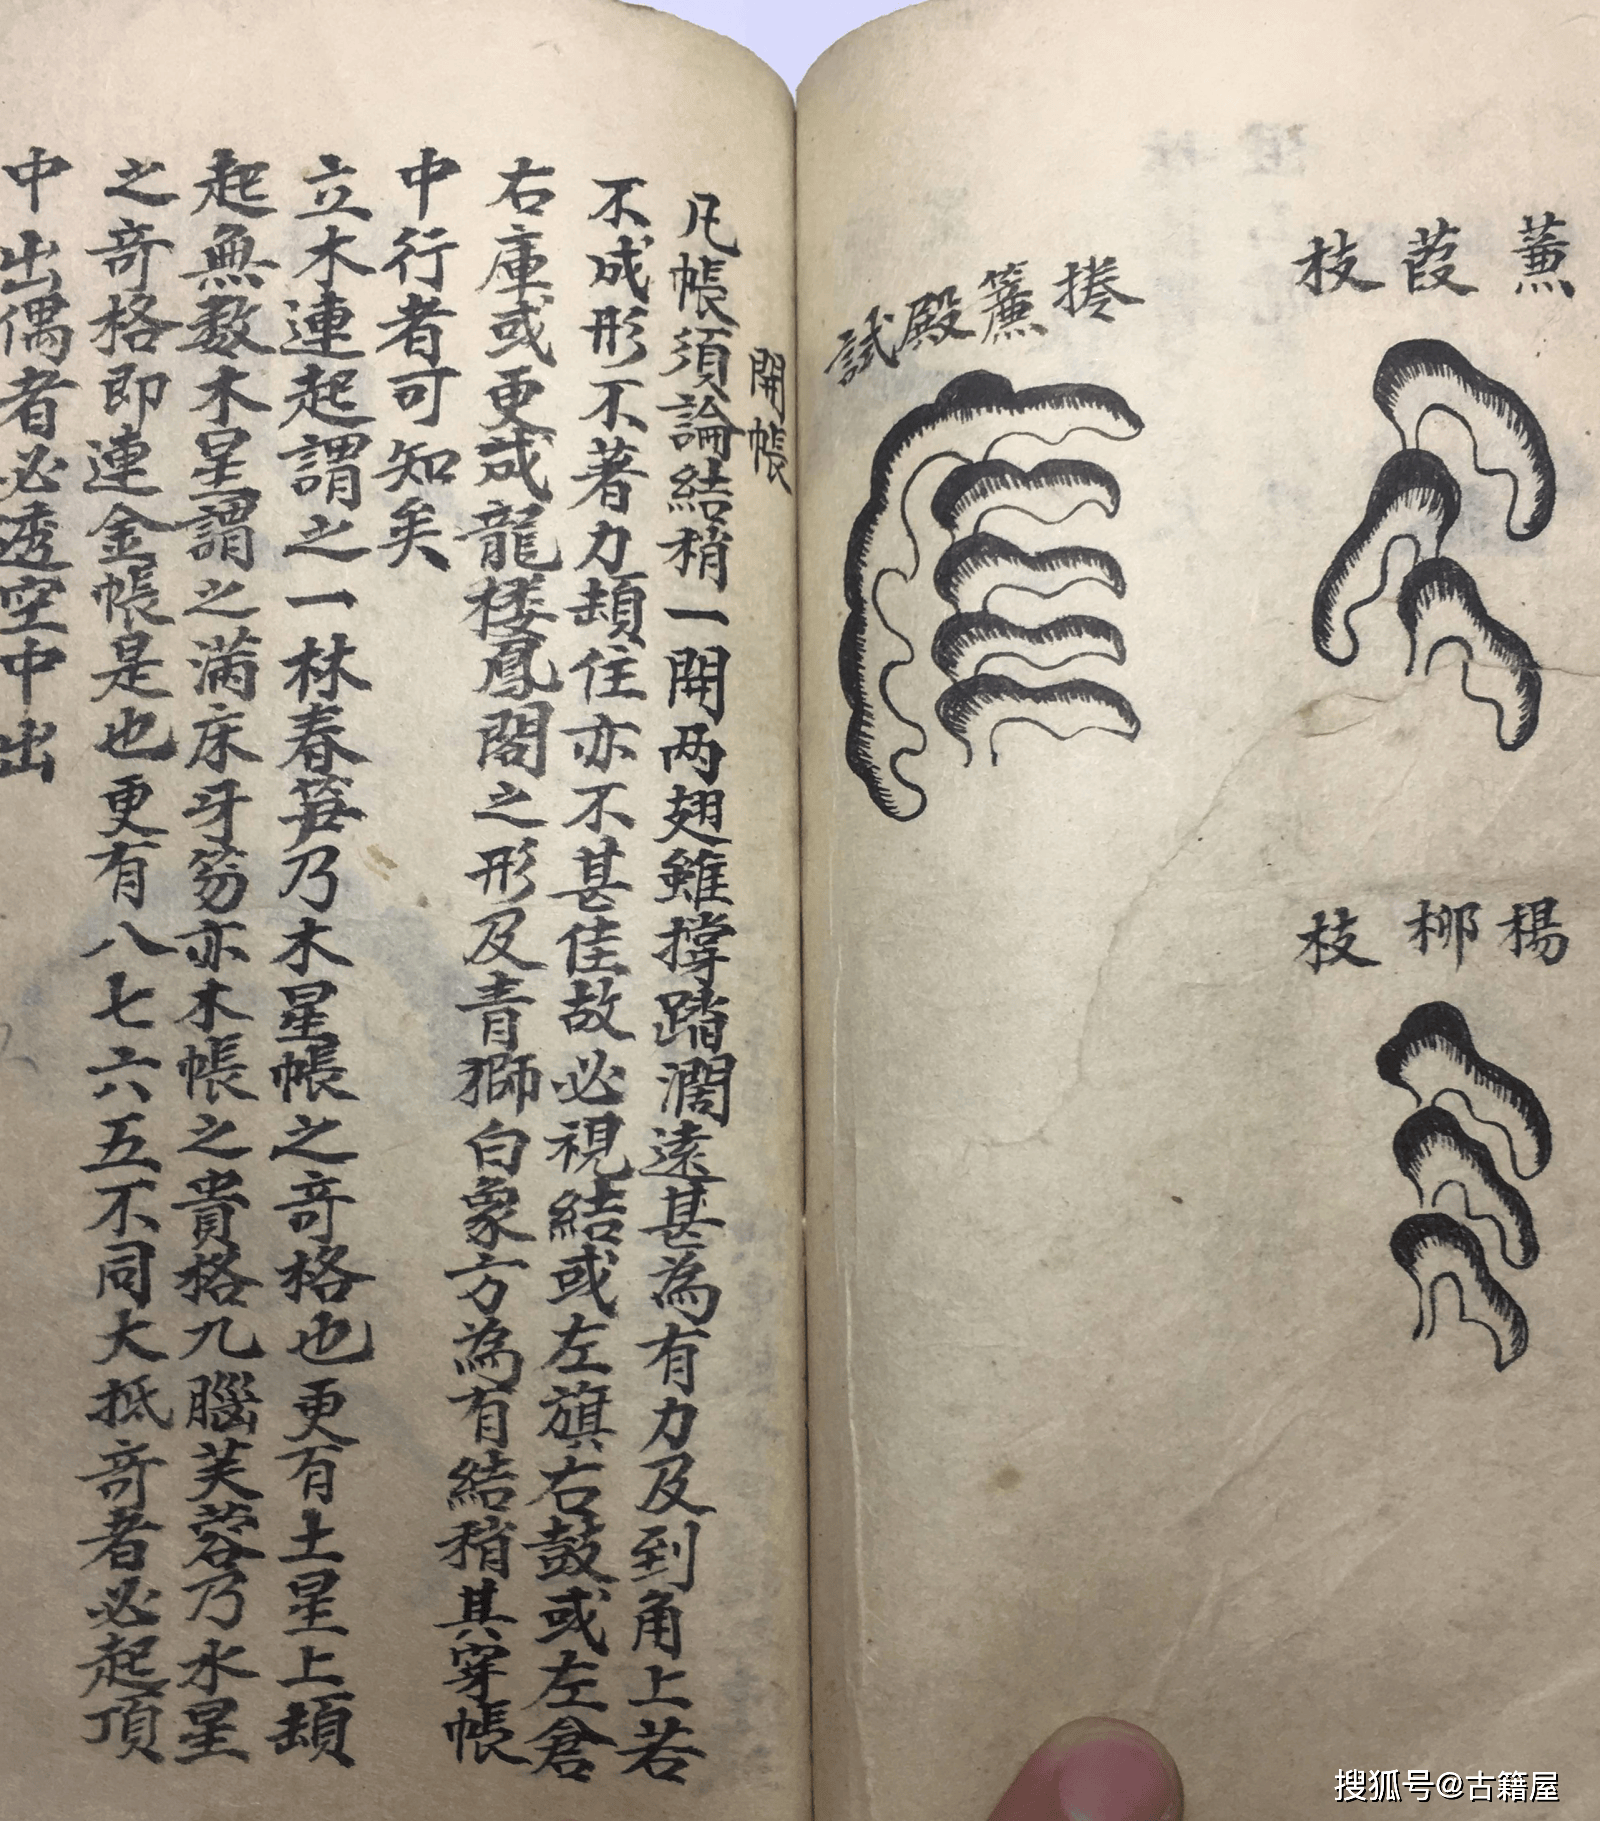 蒹葭枝
楊柳枝
捲簾殿試
開帳
凡帳須論結稍一開两翅雖撐踏濶遠甚為有力及到角上若
不成形不著力頓住亦不甚佳故必視結或左旗右鼓或左倉
右庫或更成龍楼鳳閣之形及青獅白象方為有結稍其穿帳
中行者可知矣
立木連起謂之一林春笋乃木星帳之竒格也更有土星上頓
起無数木星謂之滿床牙笏亦木帳之貴格九腦芙蓉乃水星
之竒格即連金帳是也更有八七六五不同大抵竒者必起頂
中出偶者必透空中出
搜狐号@古籍屋